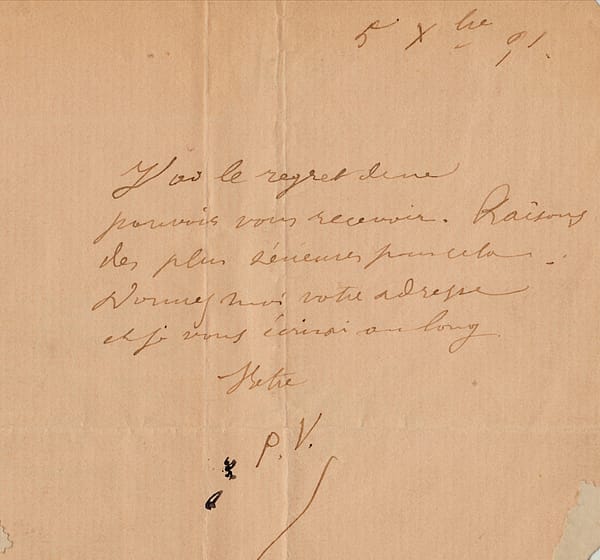 5 Xbre 91.
J'ai le regret de ne
pouvoir vous recevoir. Raisons
des plus sérieuses pour cela.
Donnez moi votre adresse
et je vous écrirai au long.
Votre
P. V.